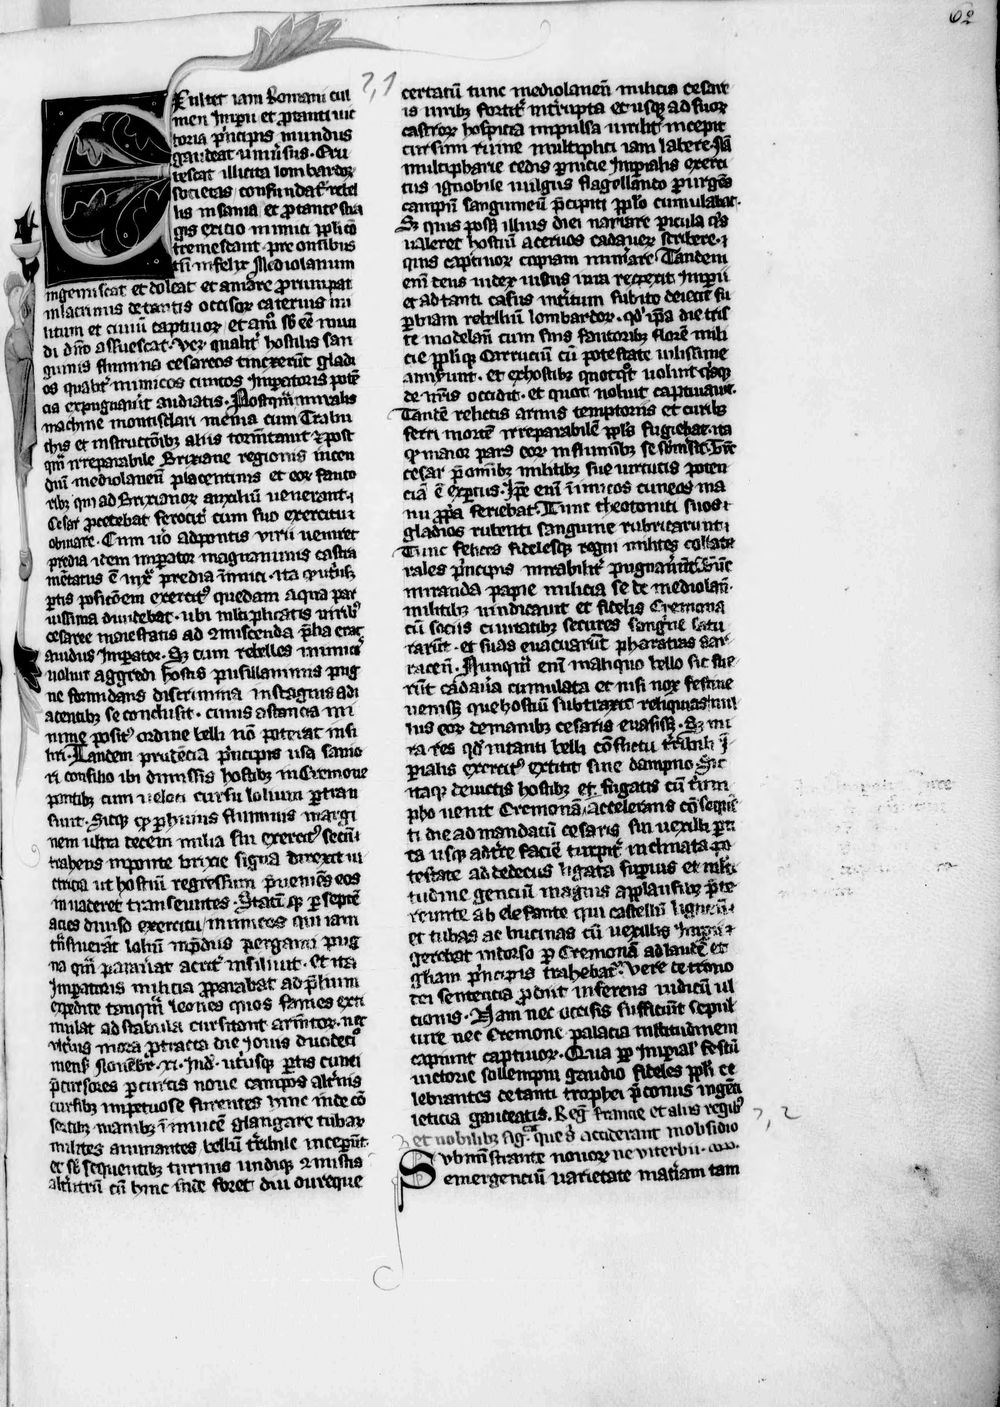 62
?,1
Exultet iam Romani cul
men Imperii et pro tanti vic
toria principis mundus
gaudeat universus. Eru
bescat illicita lombardorum
societas confundatur rebel
lis insania et pro tante stra
gis exitio inimici populi con
tremescant. pre omnibus
tamen infelix Mediolanum
ingemiscat et doleat et amare prorumpat
in lacrimis de tantis occisorum catervis mi
litum et civium captivorum et
di domino assuescat. qualiter hostilis san
guinis flumina cesareos tinxerunt gladi
os qualiter inimicos cunctos Imperatoris poten
cia expugnavit audiatis. Postquam muralis
machine montisclari menia cum Trabu
chis et instructionibus aliis tormentavit et post
quam irreparabile Brixiane regionis incen
dium mediolanensium placentinis et eorum fauto
ribus qui ad Brixianorum auxilium venerant
Cesar procedebat ferociter cum suo exercitu
obviare. Cum vero ad pontis virii veniret
predia idem imperator magnanimus castra
mentatus est iuxta predia inimici. ita quod utriusque
partis positionem exercitus quedam aqua par
vissima dividebat. ubi multiplicatis viribus
cesaree maiestatis ad committenda prelia erat
avidus Imperator. Sed cum rebelles inimici
noluit aggredi hostis pusillanimis pug
ne formidans discrimina in stagnis adi
acentibus se conclusit. cuius astancia mi
nime posito ordine belli non poterat insi
liri. Tandem prudencia principis usa sanio
ri consilio ibi dimissis hostibus in Cremone
partibus cum veloci cursu lolium pertran
sivit. Sicque quod per huius fluminis margi
nem ultra decem milia sui exercitus secum
trahens in ponte brixie signa direxit vi
ctricia ut hostium regressum preveniens eos
invaderet transeuntes. Statim quod per septem
acies diviso exercitu inimicos qui iam
transiverant lolium
na quam paraverat acriter insilivit. et ita
Imperatoris milicia properabat ad prelium
expedite tanquam leones quos fames exti
mulat ad stabula cursitant armentorum. nec
ulterius mora protracta die Iovis duodecimo
mensis Novembris .XI. Ind. utriusque partis cunei
precursores per cunctis nove campos alternis
cursibus impetuose furentes hinc inde con
sertis manibus in invicem clangore tubarum
milites animantes bellum terribile inceperunt.
et sic sequentibus turmis undique commistis
alterutrum cum hinc inde foret diu dureque
certatum tunc mediolanensium milicia cesare
is viribus fortiter interrupta et usque ad suorum
castrorum hospicia impulsa viriliter incepit
cursum ruine multiplici iam labere. Nam
multipharie cedis pernicie Imperialis exerci
tus ignobile vulgus flagellando per virgens
campum sanguineum precipiti populo cumulabat.
Sed quis posset illius diei narrare pericula quis
valeret hostium acervos cadaverum scribere.
quis captivorum copiam numerare. Tandem
enim deus iudex iustus iura respexit Imperii
et ad tanti casus interitum subito deiecit su
perbiam rebellium lombardorum. quod ipsa die tris
te modelanum cum suis fautoribus florem mili
cie populique Carrucium cum potestate vilissime
amiserunt. et ex hostibus quotquot voluit quisque
de nostris occidit. et quot noluit captivavit.
Tandem relictis armis temptoriis et curribus
ferri mortem irreparabilem populus fugiebat. ita
quod maior pars eorum in fluminibus se submersit. Tunc
cesar pre omnibus militibus sue virtutis poten
ciam est expertus. Ipse enim inimicos cuneos ma
nu propria feriebat. Tunc theotonici suos
gladios rubenti sanguine rubricarunt
Tunc felices fidelesque regni milites collate
rales principis mirabiliter pugnaverunt. Tunc
miranda papie milicia se de mediolanensium
militibus vindicavit et fidelis Cremona
cum sociis civitatibus secures sanguine satu
rarunt. et suas evacuarunt pharatras sar
raceni. Nunquam enim in aliquo bello sic fue
runt cadavera cumulata et nisi nox festine
venisset que hostium subtraxit reliquias nul
lus eorum de manibus cesaris evasisset. Sed mi
ra res quod in tanti belli conflictu terribili im
perialis exercitus extitit sine dampno. Sic
itaque devictis hostibus et fugatis cum trium
pho venit Cremonam accelerans consequen
ti die ad mandatum cesaris sui vexilli per
ta usque ad terre faciem turpiter inclinata po
testate ad dedecus ligata superius et multi
tudine gencium magnis applausibus pre
reunte ab elefante qui castellum ligneum
et tubas ac bucinas cum vexillis Imperii
gerebat in dorso per Cremonam ad laudem et
gloriam principis trahebatur. Vere de trono
dei sentencia prodiit inferens iudicium ul
tionis. Nam nec occisis sufficiunt sepul
ture nec Cremone palacia multitudinem
capiunt captivorum. Qua propter Imperialis festum
victorie sollempni gaudio fideles populi ce
lebrantes de tanti trophei preconiis ingenti
leticia gaudeatis. Regi francie et aliis regibus
et nobilibus significat que ei acciderant in obsidio
Subministrante novorum ne viterbii.
emergencium varietate materiam tam
?, 2